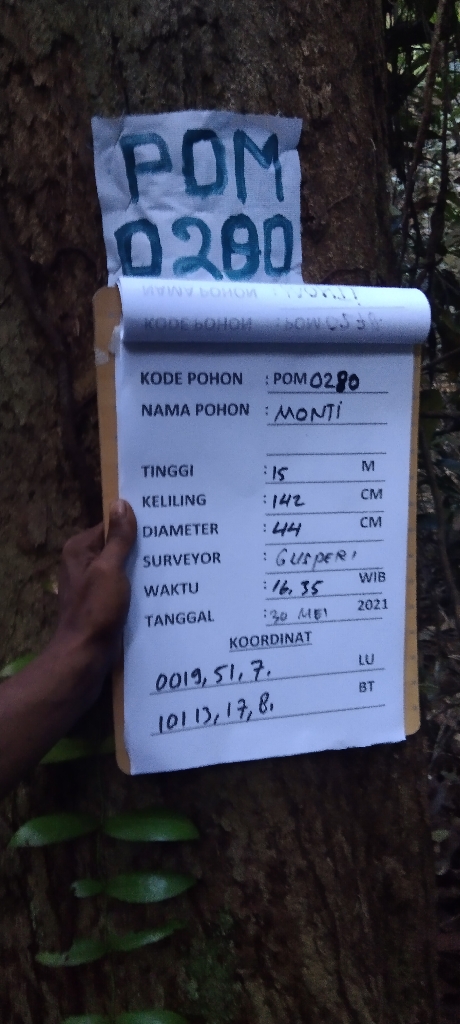 POM
0280
KODE POHON : POM 0280
NAMA POHON : MONTI
TINGGI : 15 M
KELILING : 142 CM
DIAMETER : 44 CM
SURVEYOR : GUSPERI
WAKTU : 16.35 WIB
TANGGAL : 30 MEI 2021
KOORDINAT
0019, 51, 7. LU
101 13, 17, 8. BT